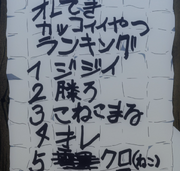 オレてき
カッコイイやつ
ランキング
1 ジジイ
2 豚ろ
3 こねこまる
4 オレ
5 クロ(ねこ)